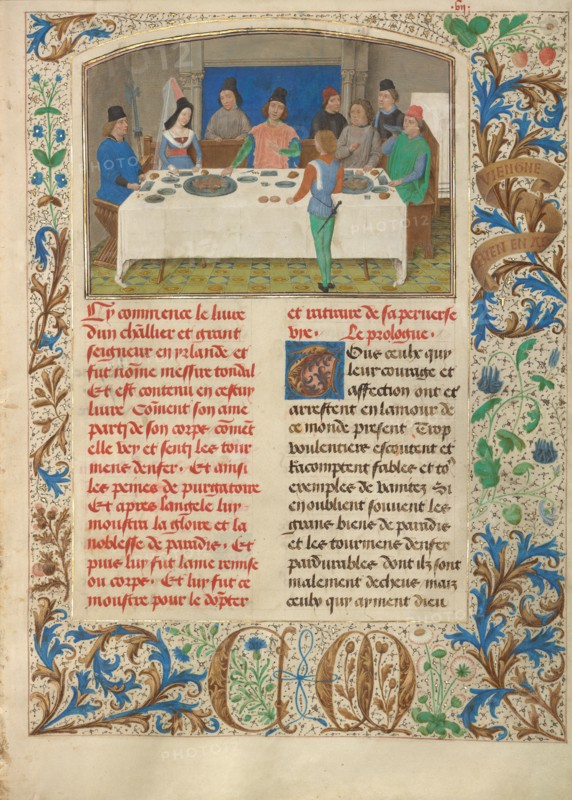 ·bij·
MENGNE
BIEN EN A
Cy commence le liure
dun ch̃allier et grant
seigneur en yrlande et
fut nõme messire tondal
Et est contenu en cestuy
liure Cõment son ame
party de son corps cõmẽt
elle vey et senty les tour
mens denfer · Et ainsi
les peines de purgatoire
Et apres langele luy
monstra la gloire et la
noblesse de paradis · Et
puis luy fut lame remise
ou corps · Et luy fut ce
monstre pour le dõpter
et retraire de sa peruerse
vye · Le prologue ·
Tous ceulx qui
leur courage et
affection ont et
arrestent en lamour de
ce monde present Trop
voulentiers escoutent et
Racomptent fables et to9
exemples de vanitez Si
en oublient souuent les
grans biens de paradis
et les tourmens denfer
pardurables dont ilz sont
malement deceus maiz
ceulx qui ayment dieu
C M
PHOTO12
PHOTO12
PHOTO12
PHOTO12